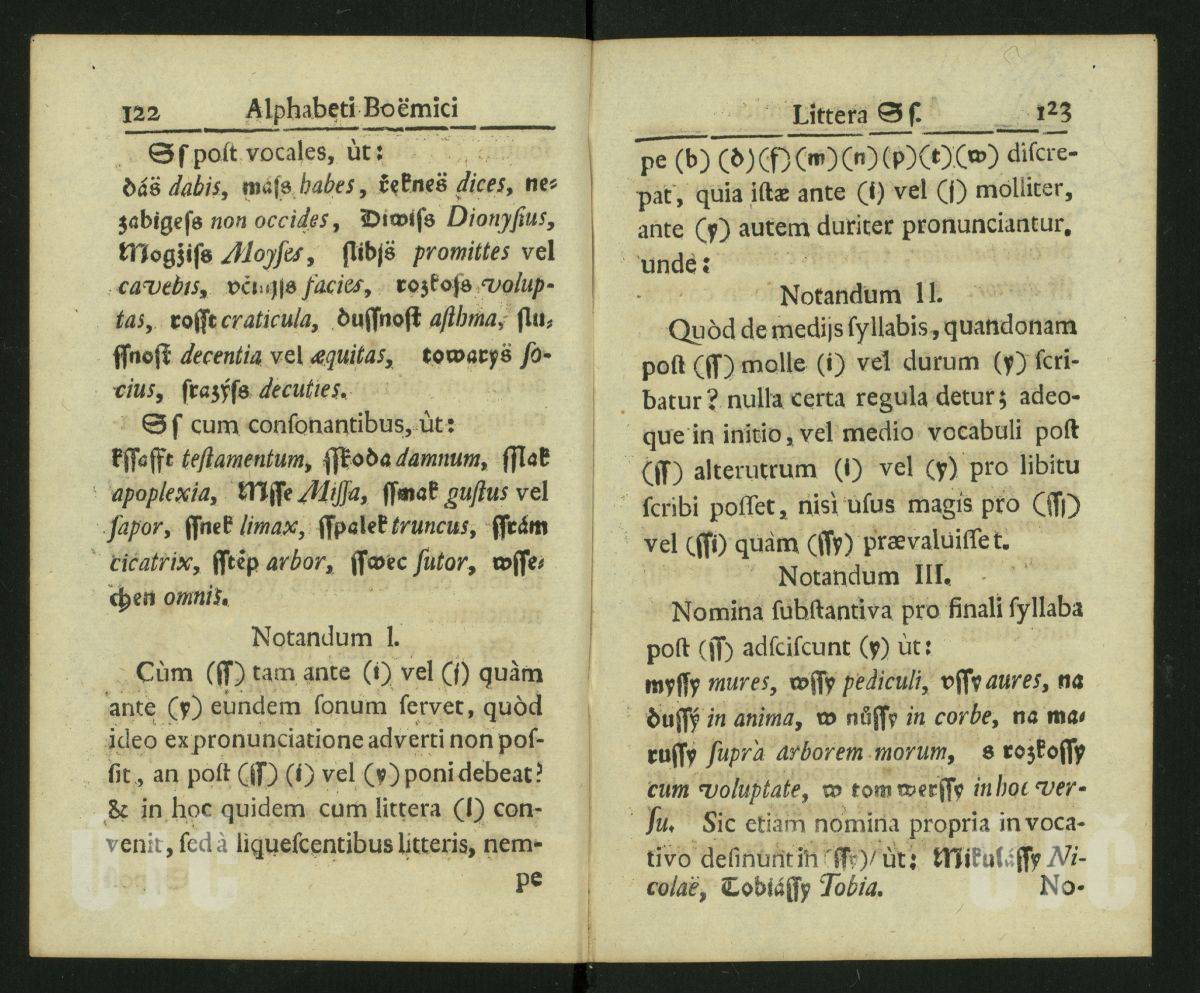 122 Alphabeti Boëmici
Sſ poſt vocales, ùt:
dáß dabis, máſs habes, řekneß dices, ne⸗
zabigeſs non occides, Diwiſs Dionyſius,
Mogžiſs Moyſes, ſlibjß promittes vel
cavebis, facies, rozkoſs volup-
tas, roſſt craticula, duſſnoſt aſthma, ſlu⸗
ſſnoſt decentia vel æquitas, towaryß ſo-
cius, ſrazýſs decuties.
Sſ cum conſonantibus, ùt:
kſſafft teſtamentum, ſſkoda damnum, ſſlak
apoplexia, Mſſe Miſſa, ſſmak guſtus vel
ſapor, ſſnek limax, ſſpalek truncus, ſſrám
cicatrix, ſſtěp arbor, ſſwec ſutor, wſſe⸗
chen omnis.
Notandum I.
Cùm (ſſ) tam ante (i) vel (j) quàm
ante (y) eundem ſonum ſervet, quòd
ideo ex pronunciatione adverti non poſ-
ſit, an poſt (ſſ) (i) vel (y) poni debeat?
& in hoc quidem cum littera (l) con-
venit, ſed à liqueſcentibus litteris, nem-
pe
Littera Sſ. 123
pe (b) (d) (f) (m) (n) (p) (t) (w) diſcre-
pat, quia iſtæ ante (i) vel (j) molliter,
ante (y) autem duriter pronunciantur.
unde:
Notandum II.
Quòd de medijs ſyllabis, quandonam
poſt (ſſ) molle (i) vel durum (y) ſcri-
batur? nulla certa regula detur; adeo-
que in initio, vel medio vocabuli poſt
(ſſ) alterutrum (i) vel (y) pro libitu
ſcribi poſſet, nisì uſus magis pro (ſſj)
vel (ſſi) quàm (ſſy) prævaluiſſet.
Notandum III.
Nomina ſubſtantiva pro finali ſyllaba
poſt (ſſ) adſciſcunt (y) ùt:
myſſy mures, wſſy pediculi, vſſy aures, na
duſſý in anima, w nůſſy in corbe, na ma⸗
ruſſy ſuprà arborem morum, s rozkoſſy
cum voluptate, w tom werſſy in hoc ver-
ſu. Sic etiam nomina propria in voca-
tivo deſinunt in (ſſy) ùt: Mikuláſſy Ni-
colaë, Tobiáſſy Tobia. No-